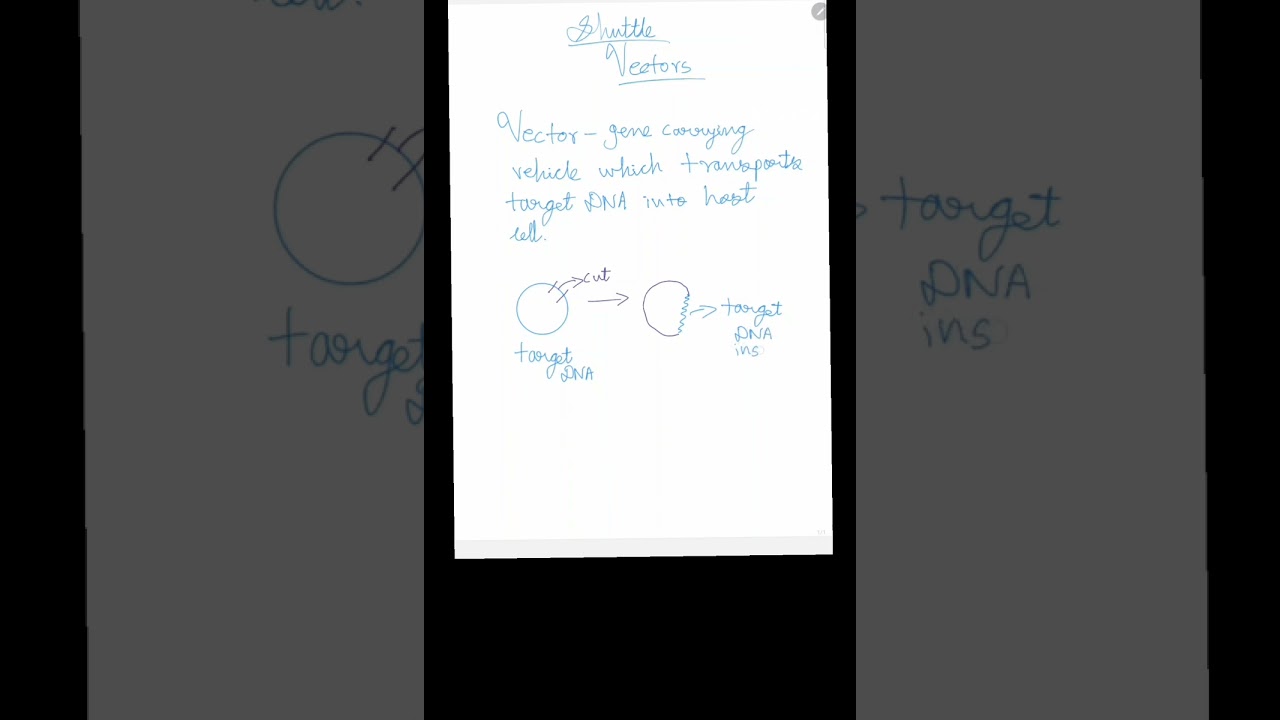 Shuttle
Vectors
Vector - gene carrying
vehicle which transports
target DNA into host
cell.
cut
target
DNA
target
DNA
ins